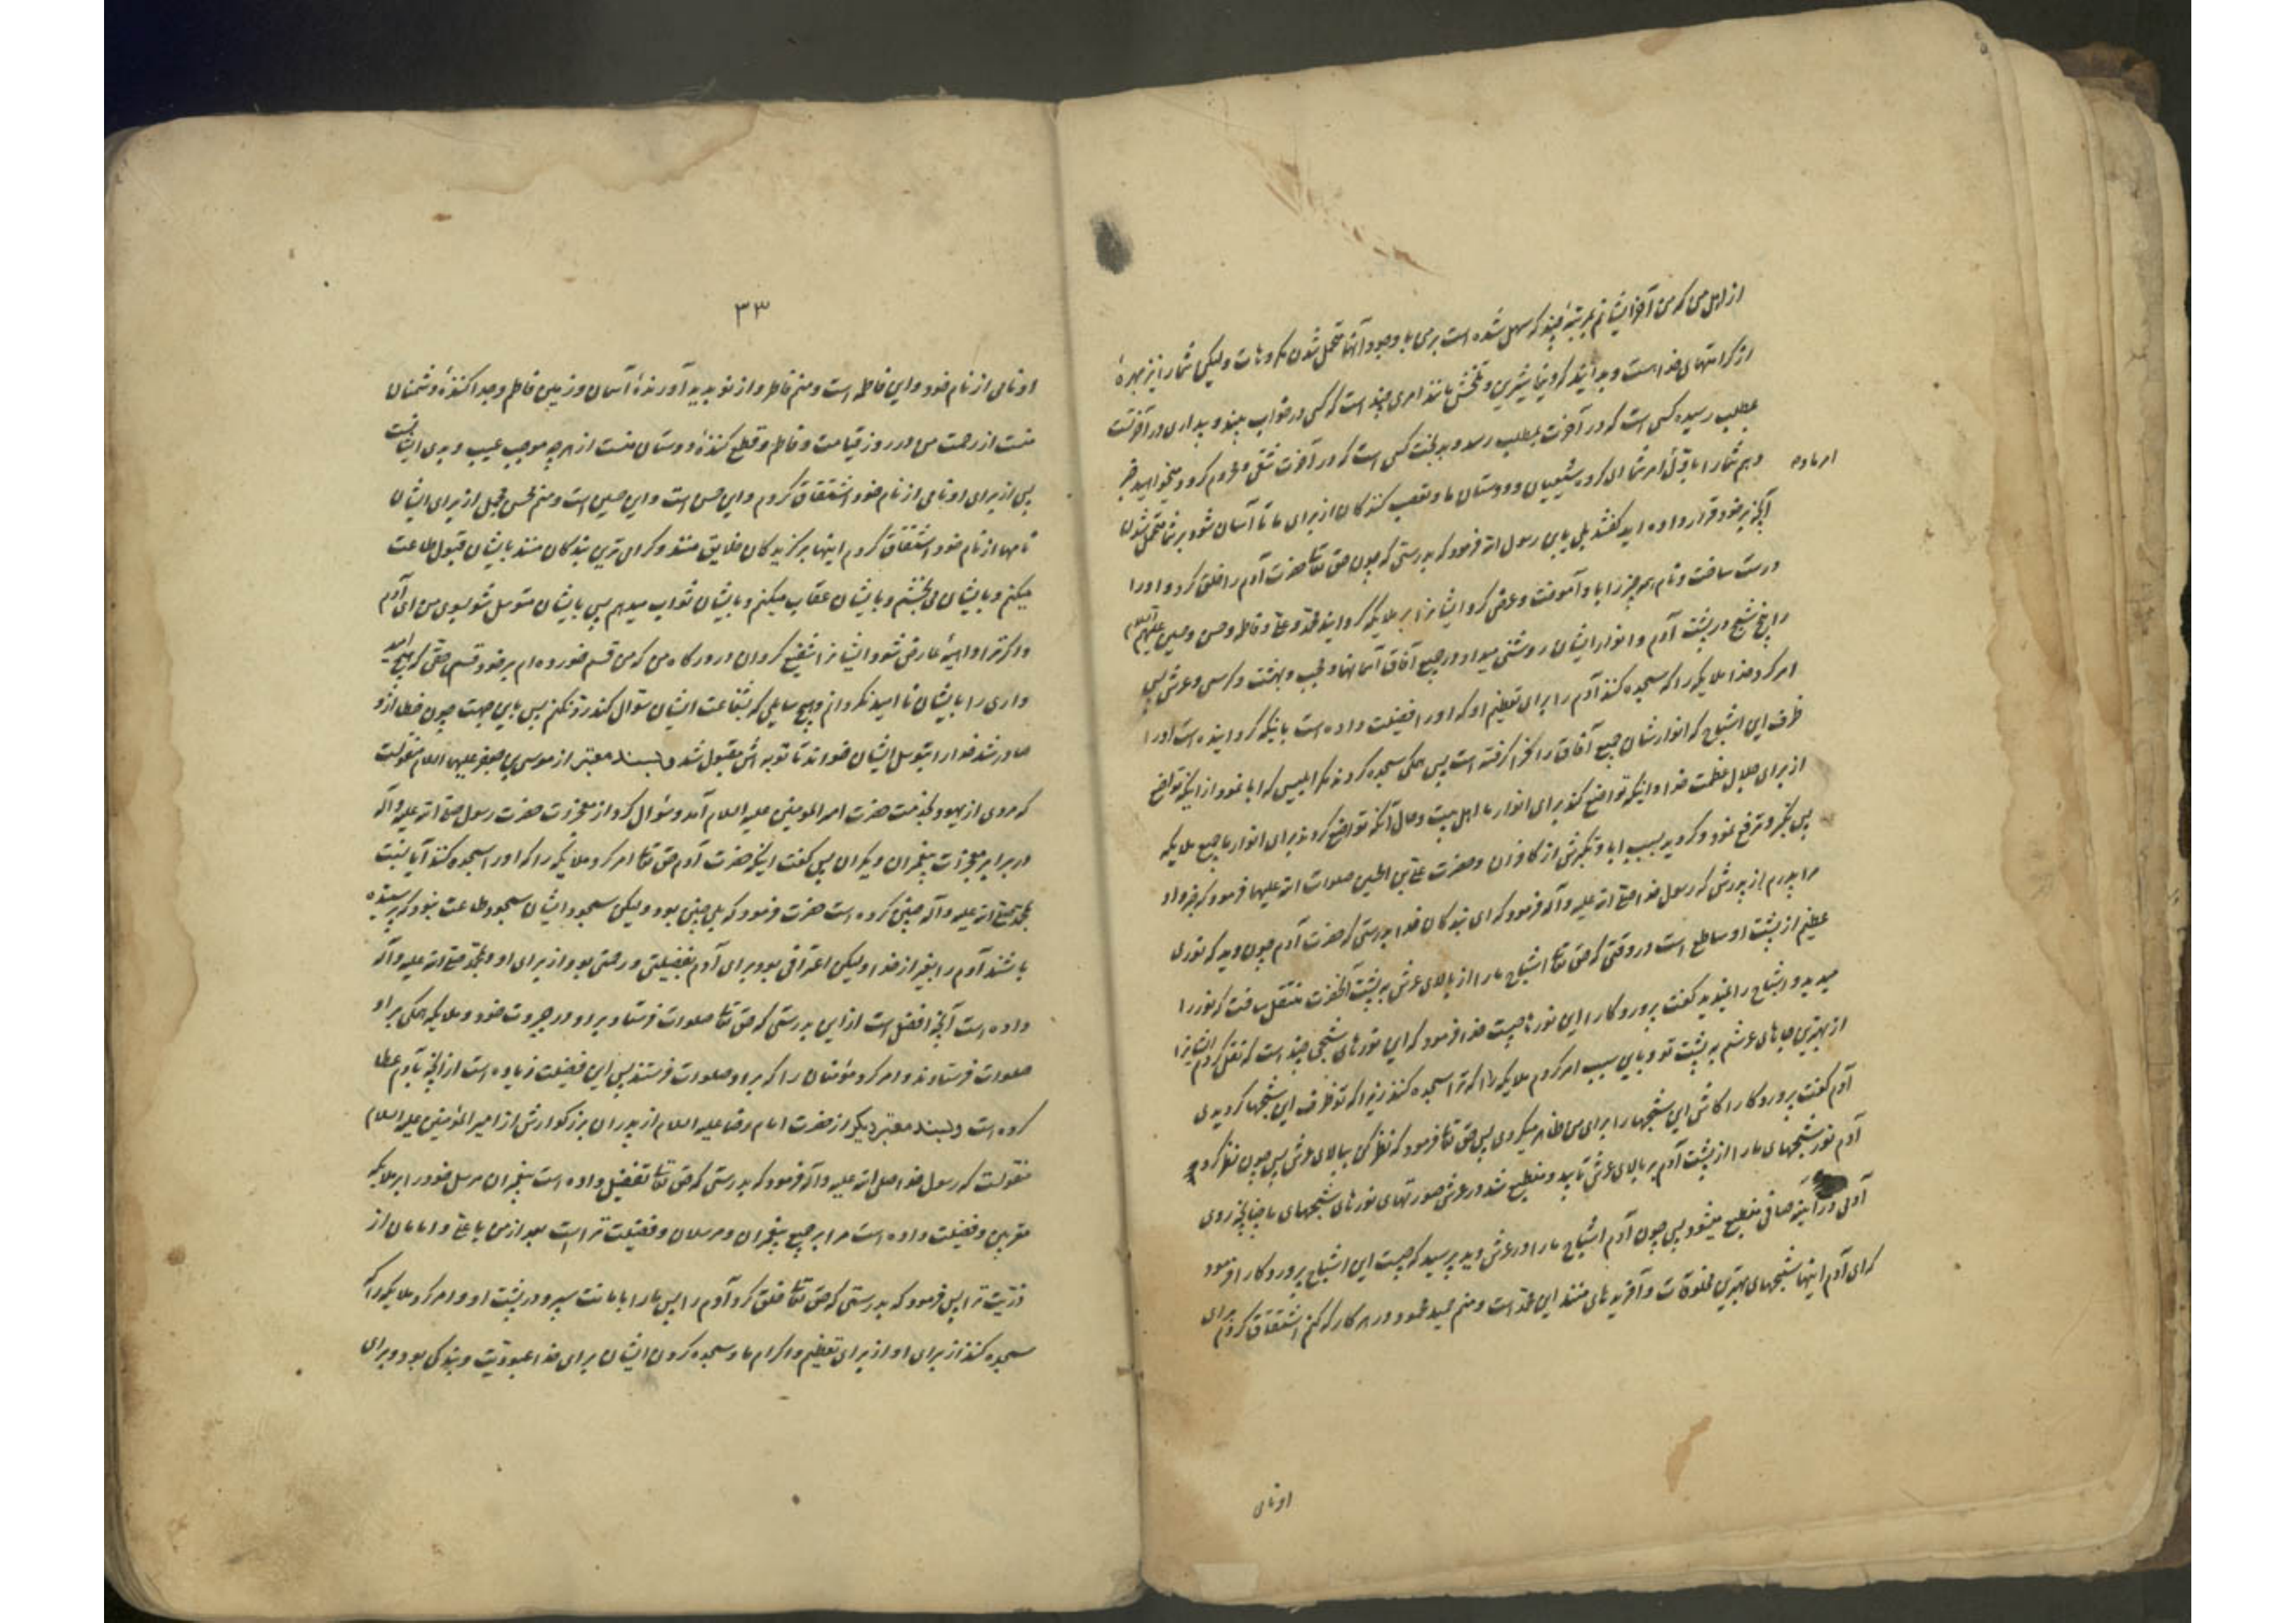 از اهل من که من آخر ایشانم بمرتبهٔ چند که سهل شده است بر من با وجود آنها متحمل شدن مکروهات ولیکن شما را نیز بهرهٔ
از کرامتهای خدا هست و بدانید که دنیا شیرین و تلخش مانند امری چند است که کسی در خواب بیند و بیداری در آخرتست
بمطلب رسیده کسی است که در آخرت بمطلب رسد و بدبخت کسی است که در آخرت شقی و محروم گردد میخواهید خبر
دهم شما را باول امر شما ای گروه شیعیان و دوستان ما و تعصب کنندگان از برای ما تا آسان شود بر شما متحمل شدن
امر ما دوم
آنچه بر خود قرار داده اید گفتند بلی یابن رسول الله فرمود که بدرستی که چون حق تعا حضرت آدم را خلق کرد و او را
درست ساخت و نام همه چیز را باو آموخت و عرض کرد ایشانرا بر ملایکه گردانید محمد و علی و فاطمه و حسن و حسین علیهم السلام
را پنج شبح در پشت آدم و انوار ایشان روشنی میداد در جمیع آفاق آسمانها و حجب و بهشت و کرسی و عرش پس
امر کرد خدا ملایکه را که سجده کنند آدم را برای تعظیم او که او را فضیلت داده است باینکه گردانیده است او را
ظرف این اشباح که انوارشان جمیع آفاق را فرا گرفته است پس همگی سجده کردند مگر ابلیس که ابا نمود از اینکه تواضع
از برای جلال عظمت خدا و اینکه تواضع کند برای انوار ما اهل بیت و حال آنکه تواضع کردند برای انوار ما جمیع ملایکه
پس تکبر و ترفع نمود و گردید بسبب ابا و تکبرش از کافران و حضرت علی بن الحسین صلوات الله علیهما فرمود که خبر داد
مرا پدرم از پدرش که رسول خدا صلی الله علیه و آله فرمود که ای بندگان خدا بدرستی که حضرت آدم چون دید که نوری
عظیم از پشت او ساطع است در وقتی که حق تعا اشباح ما را از بالای عرش به پشت آنحضرت منتقل ساخت که نور را
میدید و اشباح را نمیدید گفت پروردگارا این نورها چیست خدا فرمود که این نورهای شبحی چند است که نقل کردم ایشانرا
از بهترین جاهای عرشم به پشت تو و باین سبب امر کردم ملایکه را که ترا سجده کنند زیرا که تو ظرف این شبحها گردیدی
آدم گفت پروردگارا کاش این شبحها را برای من ظاهر میکردی پس حق تعا فرمود که نظر کن ببالای عرش پس چون نظر کرد
آدم نور شبحهای ما را از پشت آدم بر بالای عرش تابید و منطبع شد در عرش صورتهای نورهای شبحهای ما چنانچه روی
آدمی در آینه صافی منطبع میشود پس چون آدم اشباح ما را در عرش دید پرسید که چیست این اشباح پروردگارا فرمود
که ای آدم اینها شبحهای بهترین مخلوقات و آفریدهای منند این محمد است و منم حمید محمود در هر کار که کنم اشتقاق کردم برای
او نامی
۳۳
او نامی از نام خود و این فاطمه است و منم فاطر و از نو پدید آورندهٔ آسمان و زمین فاطم و جدا کنندهٔ دشمنان
منست از رحمت من در روز قیامت و فاطم و قطع کنندهٔ دوستان منست از هر چه موجب عیب و بدی ایشانست
پس از برای او نامی از نام خود اشتقاق کردم و این حسن است و این حسین است و منم محسن مجمل از برای ایشان
نامها از نام خود اشتقاق کردم اینها برگزیدگان خلایق منند و گرامی ترین بندگان منند بایشان قبول طاعت
میکنم و بایشان می بخشم و بایشان عقاب میکنم و بایشان ثواب میدهم پس بایشان متوسل شو بسوی من ای آدم
و اگر ترا داهیهٔ عارض شود ایشانرا شفیع گردان در درگاه من که من قسم خورده ام بر خود قسم حقی که هیچ امید
واری را بایشان نا امید نگردانم و هیچ سایلی که بشفاعت ایشان سؤال کند رد نکنم پس باین جهت چون خطا از او
صادر شد خدا را بتوسل ایشان خواند تا توبه اش مقبول شد و بسند معتبر از موسی بن جعفر علیهما السلام منقولست
که مردی از یهود بخدمت حضرت امیر المومنین علیه السلام آمد و سؤال کرد از معجزات حضرت رسول صلی الله علیه و آله
در برابر معجزات پیغمبران دیگران پس گفت اینکه حضرت آدم حق تعا امر کرد ملایکه را که او را سجده کنند آیا نسبت
بمحمد صلی الله علیه و آله چنین کرده است حضرت فرمود که بلی چنین بود ولیکن سجود ایشان سجود طاعت نبود که پرسیده
باشند آدم را بغیر از خدا ولیکن اعترافی بود برای آدم بفضیلتی و رحمتی بود از برای او و بمحمد صلی الله علیه و آله
داده است آنچه افضل است از این بدرستی که حق تعا صلوات فرستاد بر او در جبروت خود و ملایکه همگی بر او
صلوات فرستادند و امر کرد مؤمنان را که بر او صلوات فرستند پس این فضیلت زیاده است از آنچه بآدم عطا
کرده است و بسند معتبر دیگر از حضرت امام رضا علیه السلام از پدران بزرگوارش از امیر المؤمنین علیه السلام
منقولست که رسول خدا صلی الله علیه و آله فرمود که بدرستی که حق تعا تفضیل داده است پیغمبران مرسل خود را بر ملایکه
مقربین و فضیلت داده است مرا بر جمیع پیغمبران و مرسلان و فضیلت تراست بعد از من یا علی و امامان از
ذریت ترا پس فرمود که بدرستی که حق تعا خلق کرد آدم را پس ما را بامانت سپرد در پشت او و امر کرد ملایکه را که
سجده کنند از برای او از برای تعظیم و اکرام ما و سجده کردن ایشان برای خدا عبودیت و بندگی بود و برای